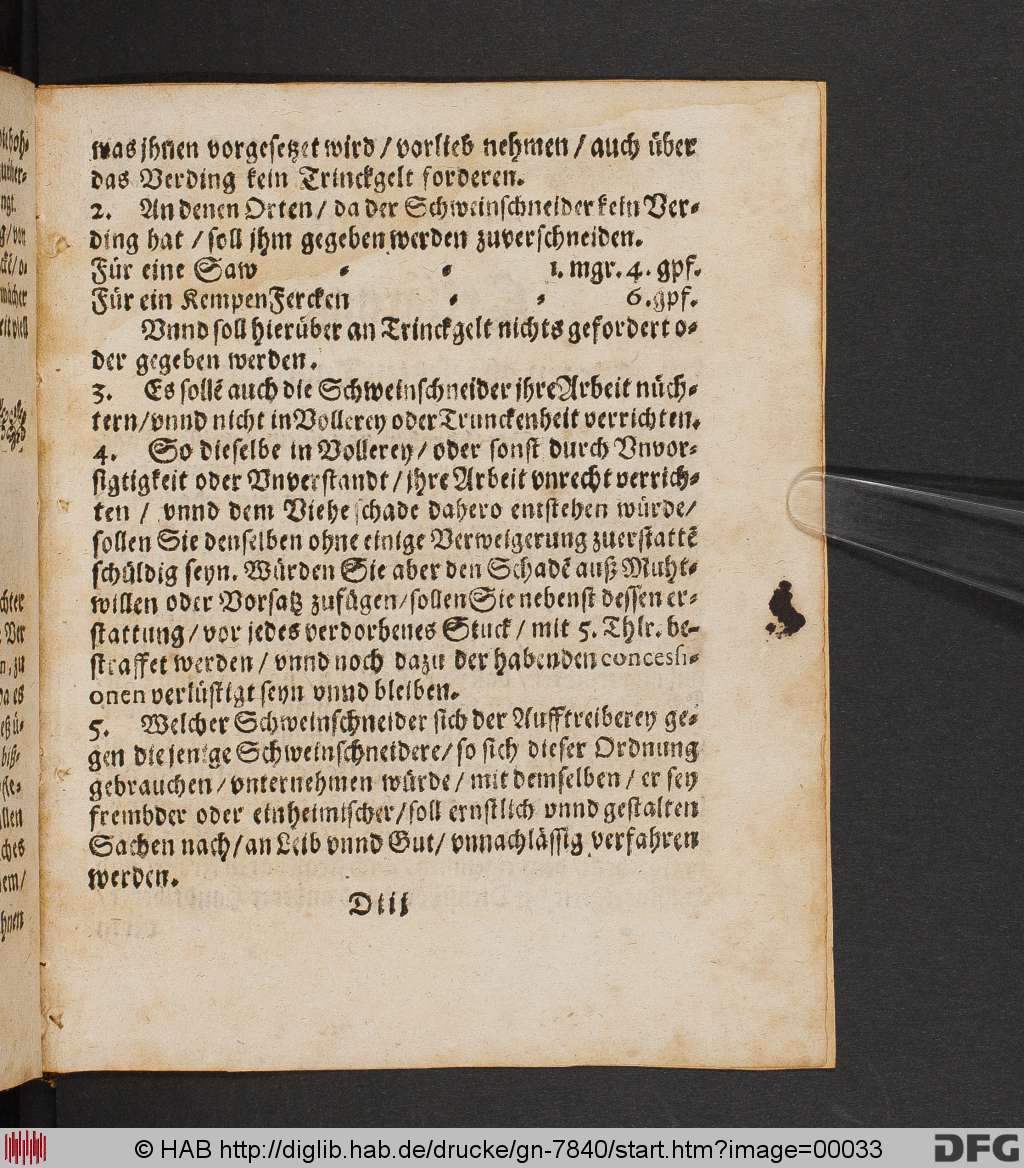 was jhnen vorgesetzet wird / vorlieb nehmen / auch über
das Verding kein Trinckgelt forderen.
2. An denen Orten / da der Schweinschneider kein Ver-
ding hat / soll jhm gegeben werden zuverschneiden.
Für eine Saw - - 1. mgr. 4. gpf.
Für ein Kempen Fercken - - 6. gpf.
Vnnd soll hierüber an Trinckgelt nichts gefordert o-
der gegeben werden.
3. Es sollē auch die Schweinschneider jhre Arbeit nüch-
tern / vnnd nicht in Vollerey oder Trunckenheit verrichten.
4. So dieselbe in Vollerey / oder sonst durch Vnvor-
sigtigkeit oder Vnverstandt / jhre Arbeit vnrecht verrich-
ten / vnnd dem Viehe schade dahero entstehen würde /
sollen Sie denselben ohne einige Verweigerung zuerstattē
schüldig seyn. Würden Sie aber den Schadē auß Muht-
willen oder Vorsatz zufügen / sollen Sie nebenst dessen er-
stattung / vor jedes verdorbenes Stuck / mit 5. Thlr. be-
straffet werden / vnnd noch dazu der habenden concessi-
onen verlüstigt seyn vnnd bleiben.
5. Welcher Schweinschneider sich der Aufftreiberey ge-
gen die jenige Schweinschneidere / so sich dieser Ordnung
gebrauchen / vnternehmen würde / mit demselben / er sey
frembder oder einheimischer / soll ernstlich vnnd gestalten
Sachen nach / an Leib vnnd Gut / vnnachlässig verfahren
werden.
D iij
© HAB http://diglib.hab.de/drucke/gn-7840/start.htm?image=00033
DFG